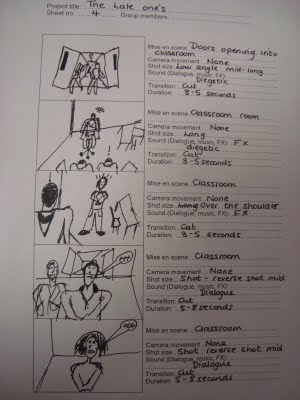 Project title: The hate one's
Sheet no: 4 Group members:
Mise en scene Doors opening into
classroom
Camera movement None
Shot size Low angle mid-long
Sound (Dialogue, music, FX) Diegetic
Transition: Cut
Duration: 3-5 seconds
Mise en scene Classroom room
Camera movement None
Shot size Long
Sound (Dialogue, music, FX) FX
diegetic
Transition: Cut
Duration: 3-5 seconds
Mise en scene Classroom
Camera movement None
Shot size Long Over the shoulder
Sound (Dialogue, music, FX) FX
Transition: Cut
Duration: 3-5 seconds
Mise en scene Classroom
Camera movement None
Shot size Shot - reverse shot mid
Sound (Dialogue, music, FX)
Dialogue
Transition: Cut
Duration: 5-8 seconds
Mise en scene Classroom
Camera movement None
Shot size Shot reverse shot mid
Sound (Dialogue, music, FX)
Dialogue
Transition: Cut
Duration: 5-8 seconds